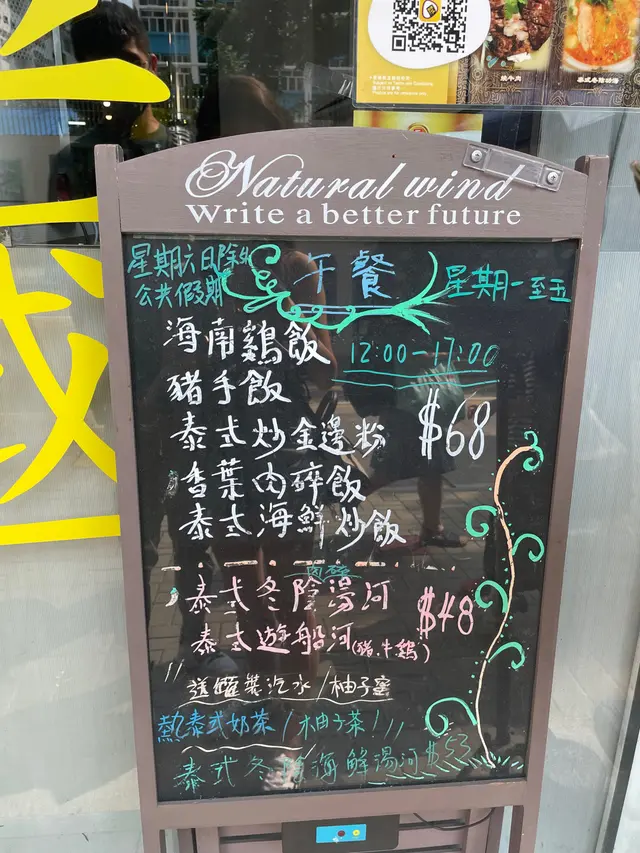 Natural wind
Write a better future
星期六日除外
公共假期
午餐
星期一至五
海南鷄飯
12:00-17:00
豬手飯
$68
泰式炒金邊粉
香葉肉碎飯
泰式海鮮炒飯
肉碎
泰式冬陰湯河
$48
泰式遊船河(豬、牛鷄)
送罐裝汽水/柚子蜜
熱泰式奶茶/柚子茶!
泰式冬陰海鮮湯河$53